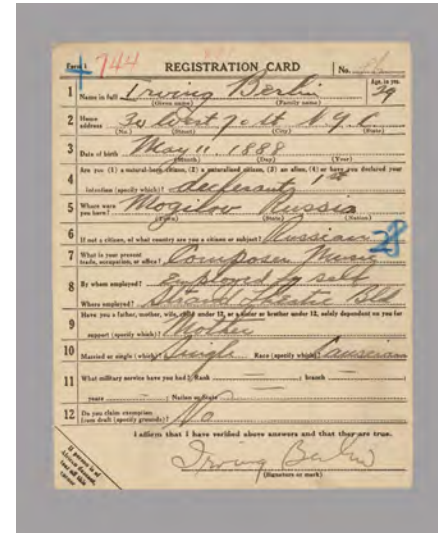 Form 1 744 REGISTRATION CARD No.
1 Name in full Irving Berlin Age, in yrs. 29
(Given name) (Family name)
2 Home address 30 West 70 st N.Y.C
(No.) (Street) (City) (State)
3 Date of birth May 11. 1888
(Month) (Day) (Year)
4 Are you (1) a natural-born citizen, (2) a naturalized citizen, (3) an alien, (4) or have you declared your
intention (specify which)? declarant 1st
5 Where were you born? Mogilov Russia
(Town) (State) (Nation)
6 If not a citizen, of what country are you a citizen or subject? Russian 28
7 What is your present trade, occupation, or office? Composer Music
8 By whom employed? Employed by self
Where employed? Strand Theatre Bld
9 Have you a father, mother, wife, child under 12, or a sister or brother under 12, solely dependent on you for
support (specify which)? Mother
10 Married or single (which)? Single Race (specify which)? Caucasian
11 What military service have you had? Rank ; branch
years ; Nation or State
12 Do you claim exemption from draft (specify grounds)? No
I affirm that I have verified above answers and that they are true.
Irving Berlin
(Signature or mark)
If person is of
African descent,
tear off this
corner